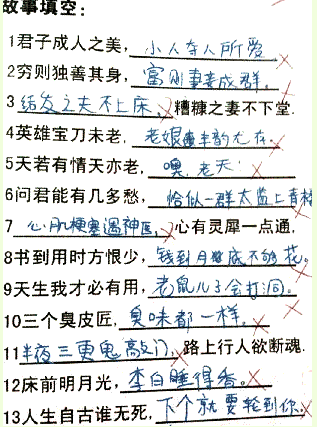 故事填空：
1君子成人之美，小人夺人所爱
2穷则独善其身，富则妻妾成群，
3结发之夫不上床，糟糠之妻不下堂.
4英雄宝刀未老，老娘丰韵尤存。
5天若有情天亦老，噢，老天
6问君能有几多愁，恰似一群太监上青楼
7心肌梗塞遇神医，心有灵犀一点通.
8书到用时方恨少，钱到月底不够花。
9天生我才必有用，老鼠儿子会打洞.
10三个臭皮匠，臭味都一样。
11半夜三更鬼敲门，路上行人欲断魂.
12床前明月光，李白睡得香。
13人生自古谁无死，下个就要轮到你.